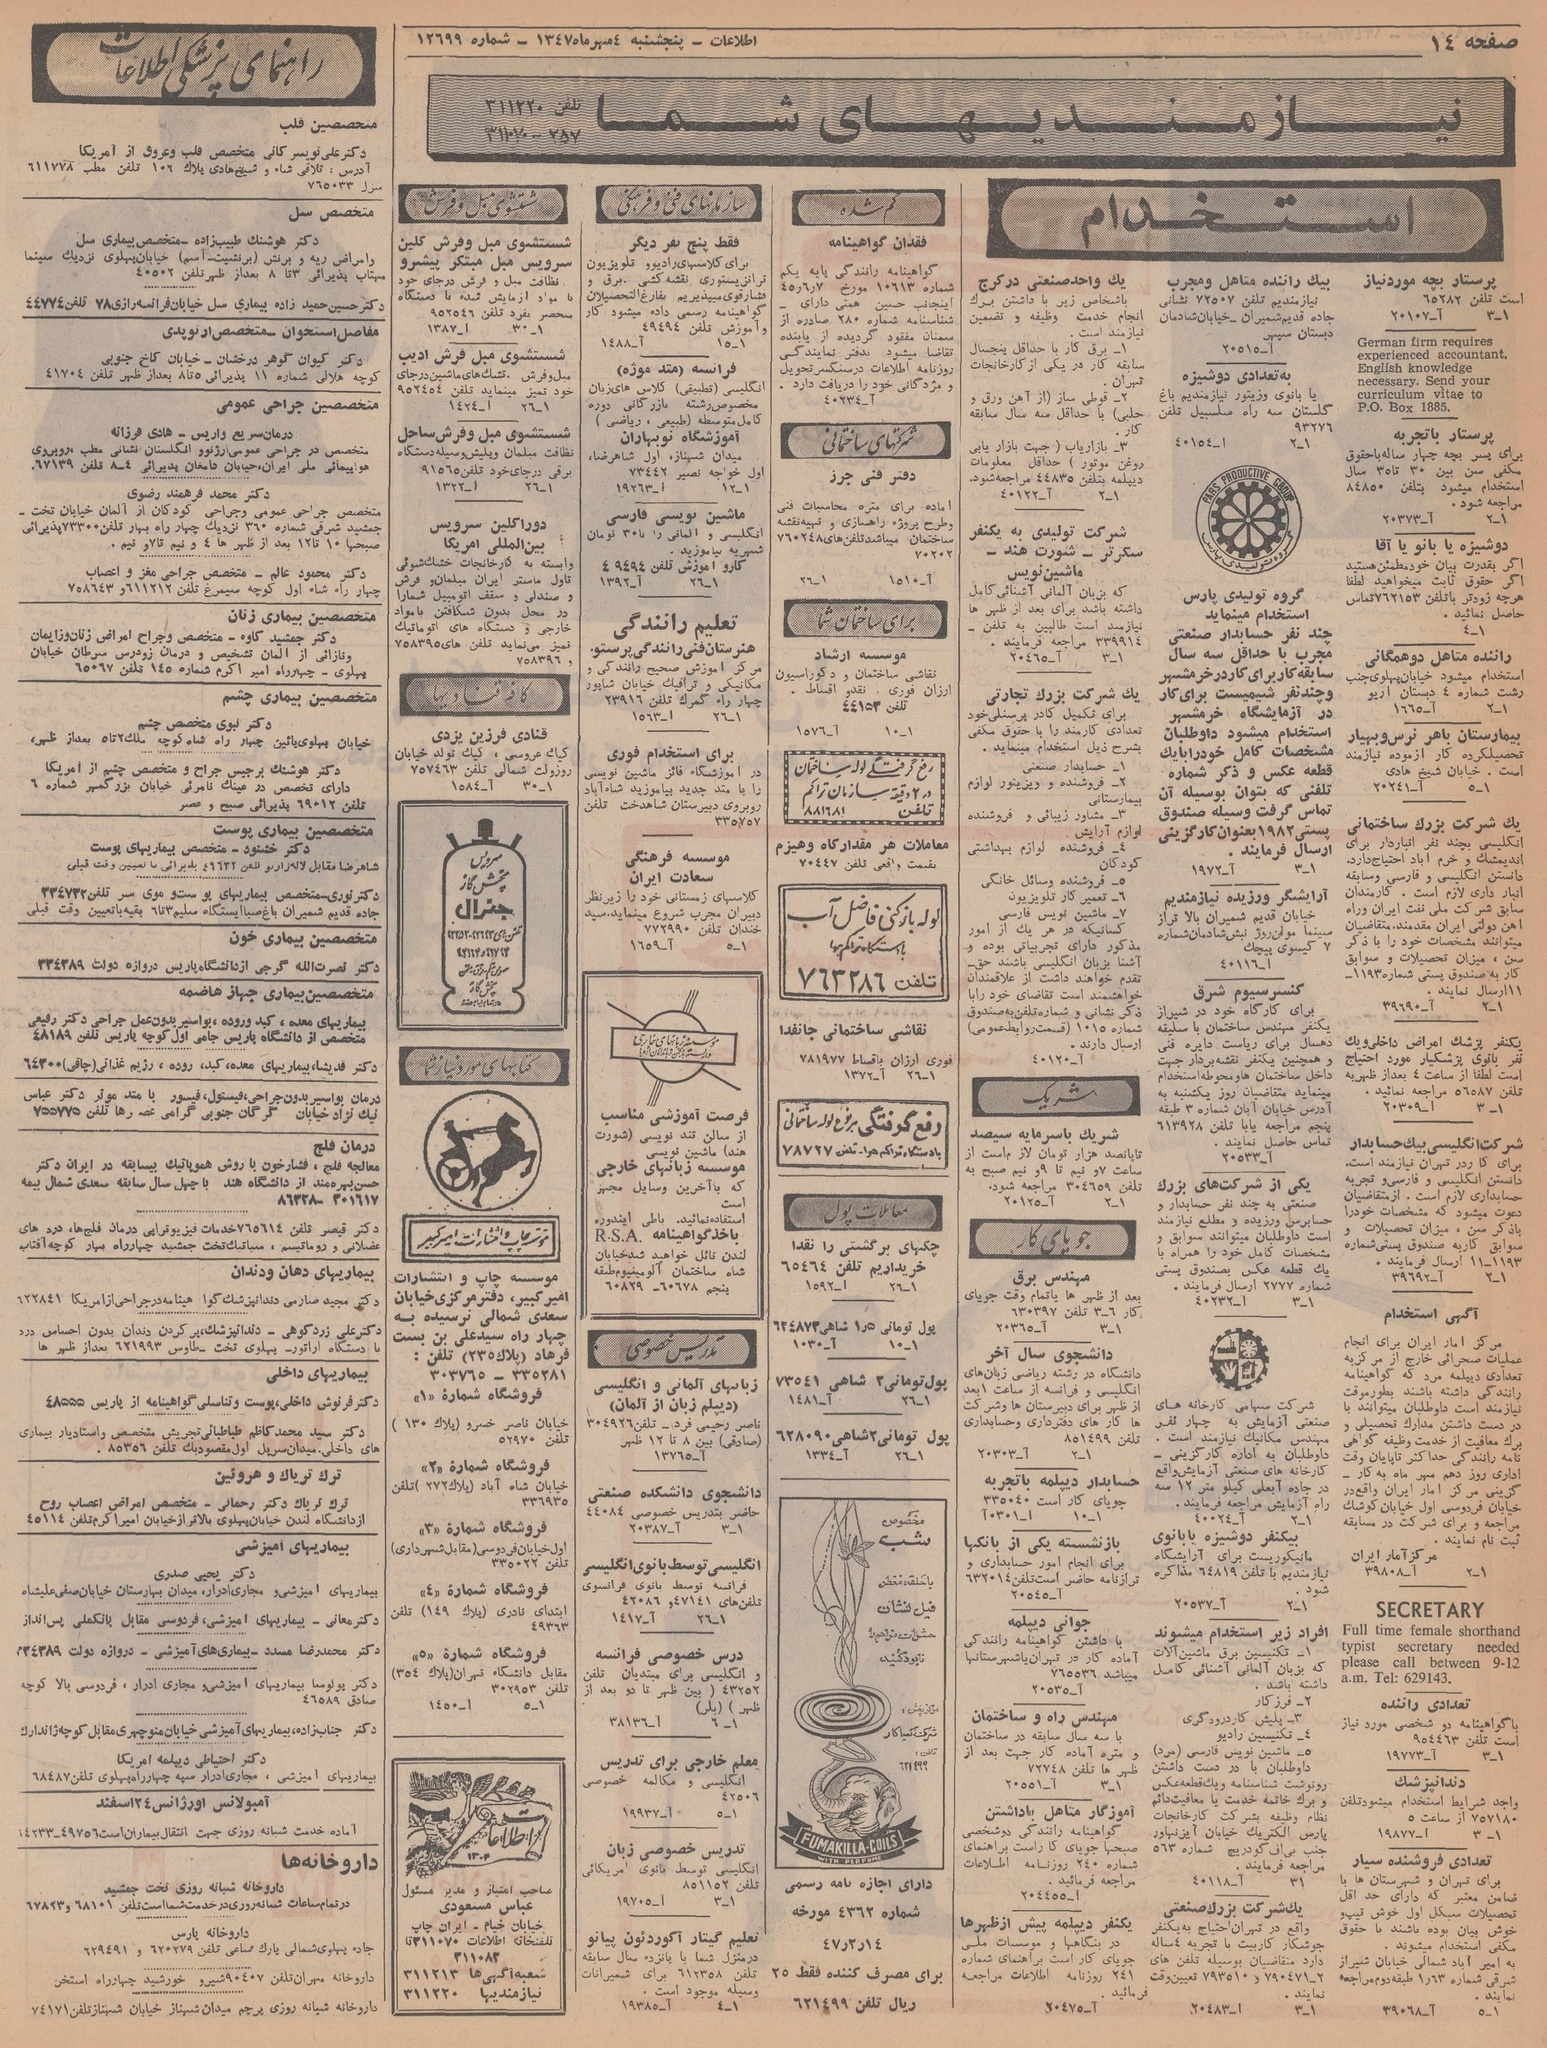 صفحه ۱٤
اطلاعات – پنجشنبه ٤ مهر ماه ۱۳٤۷ – شماره ۱۲٦۹۹
نیازمندیهای شما
تلفن ۳۱۱۲۲۰
استخدام
پرستار بچه مورد نیاز
است تلفن ٦٥۲۸۲
۱–۳ آ–۲۰۱۰۷
German firm requires
experienced accountant.
English knowledge
necessary. Send your
curriculum vitae to
P.O. Box 1885.
پرستار باتجربه
برای پسر بچه چهار ساله باحقوق
مکفی سن بین ۳۰ تا۳٥ سال
استخدام میشود بتلفن ۸٤۸٥۰
مراجعه شود.
۱–۲ آ–۲۰۳۷۳
دوشیزه یا بانو یا آقا
اگر بقدرت بیان خود مطمئن هستید
اگر حقوق ثابت میخواهید لطفا
هرچه زودتر با تلفن ۷٦۲۱٥۳ تماس
حاصل نمائید.
۱–٤
راننده متاهل دوهمگانی
استخدام میشود خیابان پهلوی جنب
رشت شماره ٤ دبستان اریو
۱–۲ آ–۱٦٦٥
بیمارستان باهر نرس و بهیار
تحصیلکرده کار آزموده نیازمند
است . خیابان شیخ هادی
۱–٥ آ–۲۰۲٤۱
یك شرکت بزرك ساختمانی
انگلیسی بچند نفر انباردار برای
اندیمشك و خرم آباد احتیاج دارد.
دانستن انگلیسی و فارسی وسابقه
انبار داری لازم است . کارمندان
سابق شرکت ملی نفت ایران وراه
آهن دولتی ایران مقدمند. متقاضیان
میتوانند مشخصات خود را با ذکر
سن ، میزان تحصیلات و سوابق
کار به صندوق پستی شماره ۱۱۹۳–
۱۱ ارسال نمایند .
۱–۲ آ–۳۹٦۹۰
یکنفر پزشك امراض داخلی ویك
نفر بانوی پزشکیار مورد احتیاج
است لطفا از ساعت ٤ بعداز ظهر به
تلفن ٥٦٥۸۷ مراجعه نمائید.
۱–۳ آ–۲۰۳۰۹
شرکت انگلیسی بیك حسابدار
برای کادر تهران نیازمند است.
دانستن انگلیسی و فارسی و تجربه
حسابداری لازم است . از متقاضیان
دعوت میشود که مشخصات خود را
باذکر سن ، میزان تحصیلات و
سوابق کار به صندوق پستی شماره
۱۱۹۳–۱۱ ارسال فرمایند .
۱–۲ آ–۳۹٦۹۲
آگهی استخدام
مرکز آمار ایران برای انجام
عملیات صحرائی خارج از مرکز به
تعدادی دیپلمه مرد که گواهینامه
رانندگی داشته باشند بطور موقت
نیازمند است داوطلبان میتوانند با
در دست داشتن مدارك تحصیلی و
برك معافیت از خدمت وظیفه گواهی
نامه رانندگی حداکثر تاپایان وقت
اداری روز دهم مهر ماه به کار–
گزینی مرکز آمار ایران واقع در
خیابان فردوسی اول خیابان کوشك
مراجعه و برای شرکت در مسابقه
ثبت نام نمایند .
مرکز آمار ایران
۱–۲ آ–۳۹۸۰۸
SECRETARY
Full time female shorthand
typist secretary needed
please call between 9-12
a.m. Tel: 629143.
تعدادی راننده
باگواهینامه دو شخصی مورد نیاز
است تلفن ۹٥٤٤٦۳
۱–۳ آ–۱۹۷۷۳
دندانپزشك
واجد شرایط استخدام میشود تلفن
۷٥۷۱۸۰ از ساعت ٥
۱–۳ آ–۱۹۸۷۷
تعدادی فروشنده سیار
برای تهران و شهرستان ها با
ضامن معتبر که دارای حد اقل
تحصیلات سیکل اول خوش تیپ و
خوش بیان بوده باشند با حقوق
مکفی استخدام میشوند .
به امیر آباد شمالی خیابان شیراز
شرقی شماره ۱٦۳ طبقه دوم مراجعه
نمایند .
۱–٥ آ–۳۹۰٦۸
بیك راننده متاهل ومجرب
نیازمندیم تلفن ۷۲٥۰۷ نشانی
جاده قدیم شمیران –خیابان شادمان
دبستان سپهر
آ–۲۰٥۱٥
به تعدادی دوشیزه
یا بانوی ویزیتور نیازمندیم باغ
گلستان سه راه سلسبیل تلفن
۹۳۲۷٦
۱–۲ آ–٤۰۱٥٤
PARS PRODUCTIVE GROUP
گروه تولیدی پارس
گروه تولیدی پارس
استخدام مینماید
چند نفر حسابدار صنعتی
مجرب با حداقل سه سال
سابقه کار برای کار در خرمشهر
وچند نفر شیمیست برای کار
در آزمایشگاه خرمشهر
استخدام میشود داوطلبان
مشخصات کامل خود را بایك
قطعه عکس و ذکر شماره
تلفنی که بتوان بوسیله آن
تماس گرفت وسیله صندوق
پستی ۱۹۸۲ بعنوان کارگزینی
ارسال فرمایند .
۱–۳ آ–۱۹۷۲
آرایشگر ورزیده نیازمندیم
خیابان قدیم شمیران بالا تراز
سینما مولن روژ نبش شادمان شماره
۷ گیسوی پیچك
آ–٤۰۱۱٦
کنسرسیوم شرق
برای کارگاه خود در شیراز
یکنفر مهندس ساختمان با سابقه
ده سال برای ریاست دایره فنی
و همچنین یکنفر نقشه بردار جهت
داخل ساختمان ها ومحوطه استخدام
مینماید متقاضیان روز یکشنبه به
آدرس خیابان آبان شماره ۳ طبقه
پنجم مراجعه یابا تلفن ٦۱۳۹۲۸
تماس حاصل نمایند .
آ–۲۰٥۳۳
یکی از شرکت های بزرك
صنعتی به چند نفر حسابدار و
حسابرس ورزیده و مطلع نیازمند
است داوطلبان میتوانند سوابق و
مشخصات کامل خود را همراه با
یك قطعه عکس بصندوق پستی
شماره ۲۷۷۷ ارسال فرمایند .
۱–۳ آ–٤۰۲۳۲
شرکت سهامی کارخانه های
صنعتی آزمایش به چهار نفر
مهندس مکانیك نیازمند است .
داوطلبان به اداره کارگزینی –
کارخانه های صنعتی آزمایش واقع
در جاده آبعلی کیلو متر ۱۲ سه
راه آزمایش مراجعه فرمایند .
۱–۲ آ–٤۰۰۲٤
بیکنفر دوشیزه یا بانوی
مانیکوریست برای آرایشگاه
نیازمندیم با تلفن ٦٤۸۱۹ مذاکره
شود .
۱–۲ آ–۲۰٥۳۷
افراد زیر استخدام میشوند
۱– تکنیسین برق ماشین آلات
که بزبان آلمانی آشنائی کامل
داشته باشد .
۲– فرز کار
۳– پلیش کار درودگری
٤– تکنیسین رادیو
٥– ماشین نویس فارسی (مرد)
داوطلبان با در دست داشتن
رونوشت شناسنامه ویك قطعه عکس
و برك خاتمه خدمت یا معافیت دائم
نظام وظیفه بشرکت کارخانجات
پارس الکتریك خیابان آیزنهاور
جنب بی اف گودریچ شماره ٥٦۳
مراجعه فرمایند .
آ–٤۰۱۱۸
یك شرکت بزرك صنعتی
واقع در تهران احتیاج به یکنفر
جوشکار کاربیت با تجربه ٤ ساله
دارد متقاضیان بوسیله تلفن های
۲–۷۹۰٤۷۱ و ۷۹۳٥۱۰ تعیین وقت
نمایند .
۱–۳ آ–۲۰٤۸۳
یك واحد صنعتی در کرج
باشخاص زیر با داشتن برك
انجام خدمت وظیفه و تضمین
نیازمند است
۱– برق کار با حداقل پنجسال
سابقه کار در یکی از کارخانجات
تهران .
۲– قوطی ساز (از آهن ورق و
حلبی) با حداقل سه سال سابقه
کار .
۳– بازاریاب ( جهت بازار یابی
روغن موتور ) حداقل معلومات
دیپلمه بتلفن ٤٤۸۳٥ مراجعه شود.
۱–۲ آ–٤۰۱۲۲
شرکت تولیدی به یکنفر
سکرتر – شورت هند –
ماشین نویس
که بزبان آلمانی آشنائی کامل
داشته باشد برای بعد از ظهر ها
نیازمند است طالبین به تلفن –
۳۳۹۹۱٤ مراجعه فرمایند .
۱–۳ آ–۲۰٤٦٥
یك شرکت بزرك تجارتی
برای تکمیل کادر پرسنلی خود
تعدادی کارمند را با حقوق مکفی
بشرح ذیل استخدام مینماید .
۱– حسابدار صنعتی
۲– فروشنده و ویزیتور لوازم
بیمارستانی
۳– مشاور زیبائی و فروشنده
لوازم آرایش
٤– فروشنده لوازم بهداشتی
کودکان
٥– فروشنده وسائل خانگی
٦– تعمیر کار تلویزیون
۷– ماشین نویس فارسی
کسانیکه در هر یك از امور
مذکور دارای تجربیاتی بوده و
آشنا بزبان انگلیسی باشند حق–
تقدم خواهند داشت از علاقمندان
خواهشمند است تقاضای خود رابا
ذکر نشانی و شماره تلفن به صندوق
شماره ۱۰۱٥ (قسمت روابط عمومی)
ارسال دارند .
آ–٤۰۱۲۰
شریك
شریك باسرمایه سیصد
تاپانصد هزار تومان لازم است از
ساعت ۷و نیم تا ۹و نیم صبح به
تلفن ۳۰٤٦٥۹ مراجعه شود.
۱–۲ آ–۲۰۱۲٥
جویای کار
مهندس برق
بعد از ظهر ها یاتمام وقت جویای
کار ٦–۳ تلفن ٦۳۰۳۹۷
۱–۳ آ–۲۰۳٦٥
دانشجوی سال آخر
دانشگاه در رشته ریاضی زبان های
انگلیسی و فرانسه از ساعت ۱ بعد
از ظهر برای دبیرستان ها وشرکت
ها کار های دفترداری وحسابداری
تلفن ۸٥۱٤۹۹
۱–۲ آ–۲۰۳۰۳
حسابدار دیپلمه باتجربه
جویای کار است ۳۳٥۰٤۰
۱–۱۰ آ–۲۰۳۰۱
بازنشسته یکی از بانکها
برای انجام امور حسابداری و
ترازنامه حاضر است تلفن ٦۳۲۰۱٤
آ–۲۰٥٤٥
جوانی دیپلمه
با داشتن گواهینامه رانندگی
آماده کار در تهران یاشهرستانها
میباشد ۷٦٥٥۳٦
آ–۲۰٥۳٥
مهندس راه و ساختمان
با سه سال سابقه در ساختمان
و متره آماده کار جهت بعد از
ظهر ها تلفن ۷۲۷٤۸
۱–۳ آ–۲۰٥٥۱
آموزگار متاهل باداشتن
گواهینامه رانندگی دوشخصی
صبحها جویای کا راست براهنمای
شماره ۲٤۰ روزنامه اطلاعات
مراجعه فرمائید .
آ–۲۰٤٤٥٥
یکنفر دیپلمه پیش از ظهرها
در بنگاهها و موسسات ملی
جویای کار است براهنمای شماره
۲٤۱ روزنامه اطلاعات مراجعه
فرمائید .
آ–۲۰٤۷٥
گم شده
فقدان گواهینامه
گواهینامه رانندگی پایه یکم
شماره ۱۰٦۱۳ مورخ ٤٥٫٦٫۷
اینجانب حسین همتی دارای –
شناسنامه شماره ۲۸۰ صادره از
سمنان مفقود گردیده از یابنده
تقاضا میشود بدفتر نمایندگی
روزنامه اطلاعات درسنگسر تحویل
و مژدگانی خود را دریافت دارد .
آ–٤۰۲۳٤
شرکتهای ساختمانی
دفتر فنی جرز
آماده برای متره محاسبات فنی
وطرح پروژه راهسازی و تهیه نقشه
ساختمان میباشد تلفن های ۷٦۰۲٤۸
۷۰۲۰۲
۱–۲٦ آ–۱٥۱۰
برای ساختمان شما
موسسه ارشاد
نقاشی ساختمان و دکوراسیون
ارزان فوری . نقدو اقساط .
تلفن ٤٤۱٥۳
۱–۱۰ آ–۱٥۷٦
رفع گرفتگی لوله ساختمان
در ۲ دقیقه سازمان تراکم
تلفن ۸۸۱٦۸۱
معاملات هر مقدار کاه وهیزم
بقیمت واقعی تلفن ۷۰٤٤۷
لوله بازکنی فاضل آب
بادستگاه تراکم هوا
تلفن ۷٦۳۲۸٦
نقاشی ساختمانی جانفدا
فوری ارزان باقساط ۷۸۱۹۷۷
۱–۲٦ آ–۱۳۷۲
رفع گرفتگی هر نوع لوله ساختمانی
بادستگاه تراکم هوا– تلفن ۷۸۷۲۷
معاملات پول
چکهای برگشتی را نقدا
خریداریم تلفن ٦٥٤٦٤
۱–۲٦ آ–۱٥۹۲
پول تومانی ۱٫٥ شاهی ٦۲٤۸۷۳
۱–۱۰ آ–۱۰۳۰
پول تومانی ۲ شاهی ۷۳٥٤۱
۱–۲٦ آ–۱٤۸۱
پول تومانی ۲ شاهی ٦۲۸۰۹۰
۱–۲٦ آ–۱۳۳٤
مخصوص
شب
با حلقه معطر
فیل نشان
حشرات موذی را
نابود کنید
شرکت کیمیا کار
تلفن :
٦۲۱٤۹۹
FUMAKILLA-COILS
WITH PERFUME
دارای اجازه نامه رسمی
شماره ٤۳٦۲ مورخه
٤۷٫۲٫۱٤
برای مصرف کننده فقط ۲٥
ریال تلفن ٦۲۱٤۹۹
سازمانهای فنی و فرهنگی
فقط پنج نفر دیگر
برای کلاسهای رادیو و تلویزیون
ترانزیستوری نقشه کشی . برق و
فشارقوی میپذیریم بفارغ التحصیلان
گواهینامه رسمی داده میشود کار
و آموزش تلفن ٤۹٤۹٤
۱–۱٥ آ–۱٤۸۸
فرانسه (متد موژه)
انگلیسی (تطبیقی) کلاس های زبان
مخصوص رشته بازرگانی دوره
کامل متوسطه (طبیعی ، ریاضی )
آموزشگاه نوبهاران
میدان شهناز، اول شاهرضا،
اول خواجه نصیر ۷۳٤٤۲
۱–۱۲ آ–۱۹۲٦۳
ماشین نویسی فارسی
انگلیسی و آلمانی را با ۳۰ تومان
شهریه بیاموزید.
کار و آموزش تلفن ٤۹٤۹٤
۱–۲٦ آ–۱۳۹۲
تعلیم رانندگی
هنرستان فنی رانندگی پرستو.
مرکز آموزش صحیح رانندگی و
مکانیکی و ترافیك خیابان شاپور
چهار راه گمرك تلفن ۲۳۹۱٦
۱–۲٦ آ–۱٥٦۳
برای استخدام فوری
در آموزشگاه فائز ماشین نویسی
را با متد جدید بیاموزید شاه آباد
روبروی دبیرستان شاهدخت تلفن
۳۳٥۷٥۷
موسسه فرهنگی
سعادت ایران
کلاسهای زمستانی خود را زیر نظر
دبیران مجرب شروع مینماید. سید
خندان تلفن ۷۷۲۹۹۰
۱–٥ آ–۱٦٥۹
فرصت آموزشی مناسب
از سالن تند نویسی (شورت
هند) ماشین نویسی
موسسه زبانهای خارجی
که باآخرین وسایل مجهز
است
استفاده نمائید. باطی ایندوره
باخذ گواهینامه R.S.A.
لندن نائل خواهید شد خیابان
شاه ساختمان آلومینیوم طبقه
پنجم ٦۰٦۷۸– ٦۰۸۲۹
تدریس خصوصی
زبانهای آلمانی و انگلیسی
(دیپلم زبان از آلمان)
ناصر رحیمی فرد – تلفن ۳۰٤۹۲٦
(صادقی) بین ۸ تا ۱۲ ظهر
آ–۱۳۷٦٥
دانشجوی دانشکده صنعتی
حاضر بتدریس خصوصی ٤٤۰۸٤
۱–۳ آ–۲۰۳۸۷
انگلیسی توسط بانوی انگلیسی
فرانسه توسط بانوی فرانسوی
تلفن های ٤۷۱٤۱و ٤۲۰۸٦
۱–۲٦ آ–۱٤۱۷
درس خصوصی فرانسه
و انگلیسی برای مبتدیان تلفن
٤۳۲٥۲ ( بین ظهر تا دو بعد از
ظهر )
۱–٦ آ–۳۸۱۳٦
معلم خارجی برای تدریس
انگلیسی و مکالمه خصوصی
٤۲٥۰٦
۱–٥ آ–۱۹۹۳۷
تدریس خصوصی زبان
انگلیسی توسط بانوی آمریکائی
تلفن ۸٥۱۱٥۲
۱–۳ آ–۱۹۷۰٥
تعلیم گیتار آکوردئون پیانو
درمنزل شما با پانزده سال سابقه
تلفن ٦۱۲۳٥۸ برای شمیرانات
وسیله موجود است .
۱–٤ آ–۱۹۳۸٥
شستشوی مبل و فرش
شستشوی مبل وفرش کلین
سرویس مبل مبتکر پیشرو
نظافت مبل و فرش درجای خود
با مواد آزمایش شده با دستگاه
منحصر بفرد تلفن ۹٥۲٥٤٦
۱–۳۰ آ–۱۳۸۷
شستشوی مبل فرش ادیب
مبل وفرش . تشك های ماشین درجای
خود تمیز مینماید تلفن ۹٥۲٤٥٤
۱–۲٦ آ–۱٤۲٤
شستشوی مبل و فرش ساحل
نظافت مبلمان وپلیش وسیله دستگاه
برقی درجای خود تلفن ۹۱٥٦٥
۱–۲٦ آ–۱۳۲۲
دوراکلین سرویس
بین المللی امریکا
وابسته به کارخانجات خشك شوئی
تاول ماستر ایران مبلمان و فرش
و صندلی و سقف اتومبیل شما را
در محل بدون شکافتن بامواد
خارجی و دستگاه های اتوماتیك
تمیز می نماید تلفن های ۷٥۸۳۹٥
و ۷٥۸۳۹٦
کافه قنادیها
قنادی فرزین یزدی
کیك عروسی ، کیك تولد خیابان
روزولت شمالی تلفن ۷٥۷٤٦۳
۱–۳۰ آ–۱٥۸٤
سرویس
پخش گاز
جنرال
کتابهای مورد نیاز شما
موسسه چاپ و انتشارات امیر کبیر
موسسه چاپ و انتشارات
امیرکبیر، دفتر مرکزی خیابان
سعدی شمالی نرسیده به
چهار راه سیدعلی بن بست
فرهاد (پلاك ۲۳٥) تلفن :
۳۳٥۲۸۱ – ۳۰۳۷٦٥
فروشگاه شمارۀ «۱»
خیابان ناصر خسرو (پلاك ۱۳۰ )
تلفن ٥۲۹۷۰
فروشگاه شمارۀ «۲»
خیابان شاه آباد (پلاك ۲۷۲ ) تلفن
۳۳٦۹۳٥
فروشگاه شمارۀ «۳»
اول خیابان فردوسی (مقابل شهرداری)
تلفن ۳۳٥۰۲۲
فروشگاه شمارۀ «٤»
ابتدای نادری (پلاك ۱٤۹) تلفن
٤۹۳٦۳
فروشگاه شمارۀ «٥»
مقابل دانشگاه تهران (پلاك ۳٥٤)
تلفن ۳۰۲۹٥۳
۱–٥ آ–۱٤٥۰
اطلاعات
۱۳۰٤
صاحب امتیاز و مدیر مسئول
عباس مسعودی
خیابان خیام – ایران چاپ
تلفنخانه اطلاعات ۳۱۱۰۷۰ تا
۳۱۱۰۸۳
شعبه آگهی ها ۳۱۱۲۱۳
نیازمندیها ۳۱۱۲۲۰
راهنمای پزشکی اطلاعات
متخصصین قلب
دکتر علی تویسرکانی متخصص قلب وعروق از آمریکا
آدرس : تلاقی شاه و شیخ هادی پلاك ۱۰٦ تلفن مطب ٦۱۱۷۷۸
منزل ۷٦٥۰۳۳
متخصص سل
دکتر هوشنك طبیب زاده –متخصص بیماری سل
وامراض ریه و برنش (برنشیت–آسم) خیابان پهلوی نزدیك سینما
مهتاب پذیرائی ۳تا ۸ بعداز ظهر تلفن ٤۰٥۰۲
دکتر حسین حمید زاده بیماری سل خیابان فرانسه رازی ۷۸ تلفن ٤٤۷۷٤
مفاصل استخوان –متخصص ارتوپدی
دکتر کیوان گوهر درخشان – خیابان کاخ جنوبی
کوچه هلالی شماره ۱۱ پذیرائی ٥تا۸ بعداز ظهر تلفن ٤۱۷۰٤
متخصصین جراحی عمومی
درمان سریع واریس – هادی فرزانه
متخصص در جراحی عمومی ازژنوو انگلستان نشانی مطب ،روبروی
هواپیمائی ملی ایران،خیابان دامغان پذیرائی ٤–۸ تلفن ٦۷۱۳۹.
دکتر محمد فرهمند رضوی
متخصص جراحی عمومی وجراحی کودکان از آلمان خیابان تخت –
جمشید شرقی شماره ۳٦۰ نزدیك چهار راه بهار تلفن ۷۳۳۰۰ پذیرائی
صبحها ۱۰ تا۱۲ بعد از ظهر ها ٤ و نیم تا۷و نیم .
دکتر محمود عالم – متخصص جراحی مغز و اعصاب
چهار راه شاه اول کوچه سیمرغ تلفن ٦۱۱۲۱۲و ۷٥۸٦٤۳
متخصصین بیماری زنان
دکتر جمشید کاوه – متخصص وجراح امراض زنان وزایمان
ونازائی از آلمان تشخیص و درمان زودرس سرطان خیابان
پهلوی – چهارراه امیر اکرم شماره ۱٤٥ تلفن ٦٥۰٦۷
متخصصین بیماری چشم
دکتر نبوی متخصص چشم
خیابان پهلوی پائین چهار راه شاه کوچه ملك ۲تا٥ بعداز ظهر،
دکتر هوشنك برجیس جراح و متخصص چشم از آمریکا
دارای تخصص در عینك نامرئی خیابان بزرگمهر شماره ٦
تلفن ٦۹۰۱۲ پذیرائی صبح و عصر
متخصصین بیماری پوست
دکتر خشنود – متخصص بیماریهای پوست
شاهرضا مقابل لاله زارنو تلفن ٤۹٦۳۲ پذیرائی با تعیین وقت قبلی
دکتر نوری–متخصص بیماریهای پوست و موی سر تلفن ۳۳٤۷۳۲
جاده قدیم شمیران باغ صبا ایستگاه سلیم ۳تا٦ بقیه باتعیین وقت قبلی
متخصصین بیماری خون
دکتر نصرت الله گرجی از دانشگاه پاریس دروازه دولت ۳۳٤۳۸۹
متخصصین بیماری جهاز هاضمه
بیماریهای معده ، کبد وروده ، بواسیر بدون عمل جراحی دکتر رفیعی
متخصص از دانشگاه پاریس جامی اول کوچه پاریس تلفن ٤۸۱۸۹
دکتر قدیشا،بیماریهای معده، کبد، روده ، رژیم غذائی (چاقی) ٦٤۳۰۰
درمان بواسیر بدون جراحی،فیستول، فیسور با متد موثر دکتر عباس
نیك نژاد خیابان گرگان جنوبی گرامی عصرها تلفن ۷٥٥۷۷٥
درمان فلج
معالجه فلج ، فشار خون با روش هموپاتیك بیسابقه در ایران دکتر
حسن بهره مند از دانشگاه هند با چهل سال سابقه سعدی شمال بیمه
۳۰۱٦۱۷ –۸٦۳۲۸
دکتر قیصر تلفن ۷٦٥٦۱٤ خدمات فیزیوتراپی درمان فلج ها، درد های
عضلانی و روماتیسم ، سیاتیك تخت جمشید چهار راه بهار کوچه آفتاب
بیماریهای دهان ودندان
دکتر مجید صارمی دندانپزشك گواهینامه درجراحی از آمریکا ٦۲۲۸٤۱
دکتر علی زردکوهی – دندانپزشك، پر کردن دندان بدون احساس درد
با دستگاه اراتور– پهلوی تخت –طاوس ٦۲۱۹۹۳ بعداز ظهر ها
بیماریهای داخلی
دکتر فرنوش داخلی،پوست وتناسلی گواهینامه از پاریس ٤۸٥٥٥
دکتر سید محمد کاظم طباطبائی تجریشی متخصص واستادیار بیماری
های داخلی.میدان سرپل اول مقصود بك تلفن ۸٥۳٥٦ .
ترك تریاك و هروئین
ترك تریاك دکتر رحمانی – متخصص امراض اعصاب روح
از دانشگاه لندن خیابان پهلوی بالاتراز خیابان امیر اکرم تلفن ٤٥۱۱٤
بیماریهای آمیزشی
دکتر یحیی صدری
بیماریهای آمیزشی و مجاری ادرار، میدان بهارستان خیابان صفی علیشاه
دکتر معانی – بیماریهای آمیزشی، فردوسی مقابل بانك ملی پس انداز
دکتر محمدرضا مسدد –بیماری های آمیزشی – دروازه دولت ۳۳٤۳۸۹
دکتر پولوسا بیماریهای آمیزشی و مجاری ادرار ، فردوسی بالا کوچه
صادق ٤٦٥۸۹
دکتر جناب زاده، بیماریهای آمیزشی خیابان منوچهری مقابل کوچه ژاندارك
دکتر احتیاطی دیپلمه آمریکا
بیماریهای آمیزشی ، مجاری ادرار سپه چهار راه پهلوی تلفن ٦۸٤۸۷
آمبولانس اورژانس ۲٤ اسفند
آماده خدمت شبانه روزی جهت انتقال بیماران است ٤۹۷٥٦–
داروخانه ها
داروخانه شبانه روزی تخت جمشید
در تمام ساعات شبانه روزی در خدمت شما است تلفن ٦۸۱۰۱ و ٦۷۸۲۳
داروخانه پارس
جاده پهلوی شمالی پارك ساعی تلفن ٦۲۰۲۷۹ و ٦۲۹٤۹۱
داروخانه مهران تلفن ۹۰٤۰۷ شیر و خورشید چهار راه استخر
داروخانه شبانه روزی پرچم میدان شهناز خیابان شهناز تلفن ۷٤۱۷۱